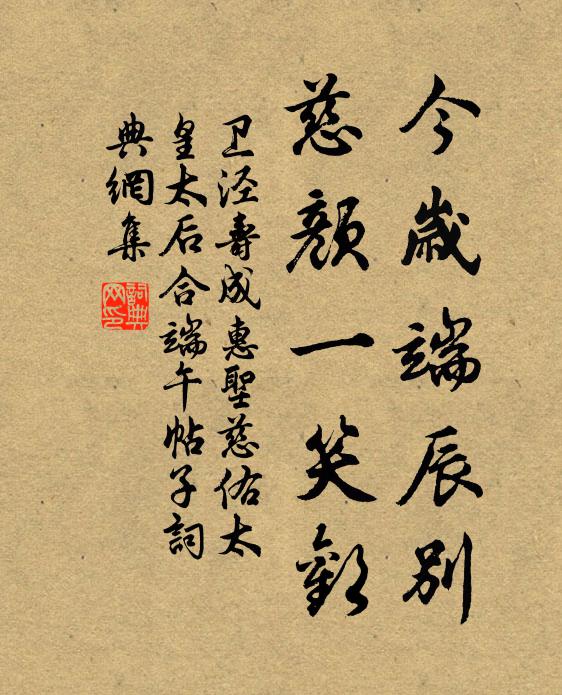 今歲端辰別
慈顏一笑歡
卫涇壽成惠聖慈佑太
皇太后合端午帖子詞
典網集
詞典
网印